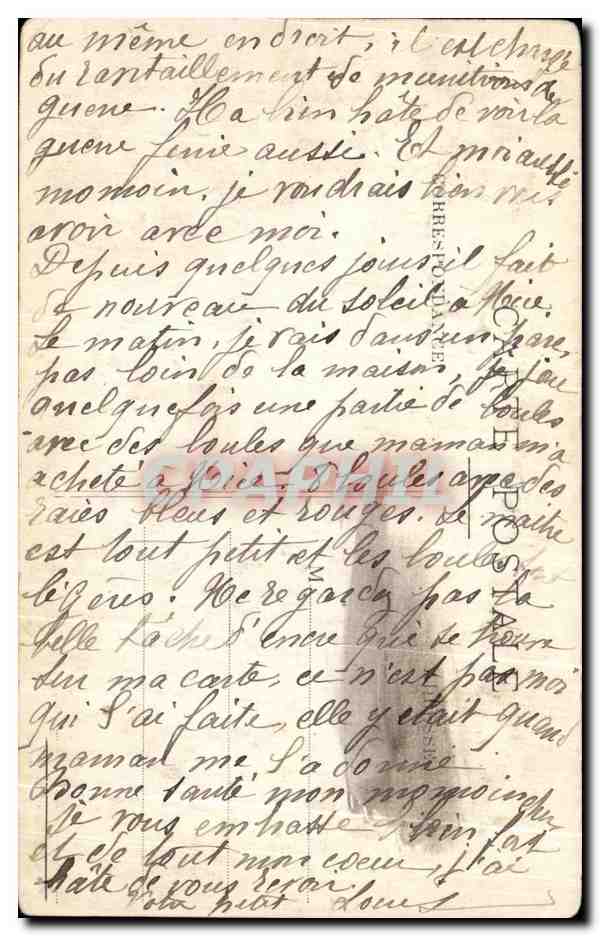 au même endroit, il est chargé
du ravitaillement de munitions de
guerre. Il a bien hâte de voir la
guerre finie aussi. Et moi aussi
momoin, je voudrais bien vous
avoir avec moi.
Depuis quelques jours il fait
de nouveau du soleil à Nice
Le matin, je vais dans un parc,
pas loin de la maison, je joue
quelquefois une partie de boules
avec des boules que maman m'a
acheté à Nice. 8 boules avec des
raies bleus et rouges. Le maitre
est tout petit et les boules
légères. Ne regardez pas la
belle tâche d'encre qui se trouve
sur ma carte, ce n'est pas moi
qui l'ai faite, elle y etait quand
maman me l'a donné
Bonne santé mon momoin cher
je vous embrasse bien fort
et de tout mon cœur, j'ai
hâte de vous revoir.
Votre petit Louis
CARTE POSTALE
CORRESPONDANCE
M
CPAPHIL